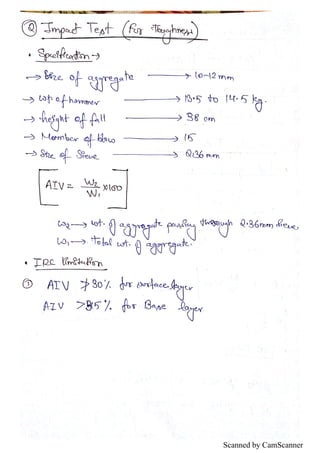 ② Impact Test (For Toughness)
• Specification →
→ Size of aggregate → 10-12mm
→ wt. of hammer → 13.5 to 14.5 kg.
→ height of fall → 38 cm
→ Number of blow → 15
→ Size of Sieve → 2.36 mm
AIV = W₂/W₁ × 100
W₂ → wt. of aggregate passing through 2.36mm sieve,
W₁ → total wt. of aggregate.
• IRC limitation
① AIV ≯ 30% for surface layer
AIV > 35% for Base layer
Scanned by CamScanner